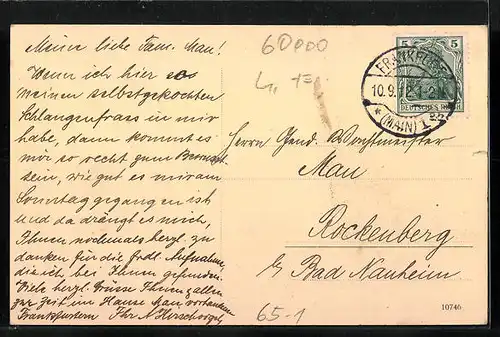 Meine liebe Fam. Mau!
Wenn ich hier so
meinen selbstgekochten
Schlangenfrass in mir
habe, dann kommt es
mir so recht zum Bewusst-
sein, wie gut es mir am
Sonntag gegangen ist
und da drängt es mich,
Ihnen nochmals herzl. zu
danken für die frdl. Aufnahme,
die ich bei Ihnen gefunden.
Viele herzl. Grüsse Ihnen allen
zur Zeit im Hause Mau vorhandenen
Frankfurtern Ihr
60000
L,
5 5
DEUTSCHES REICH
FRANKFURT
10.9.12.1-2N.
* (MAIN) 1
Herrn Gend. Wachtmeister
Mau
Rockenberg
b/ Bad Nauheim
65-1
10746